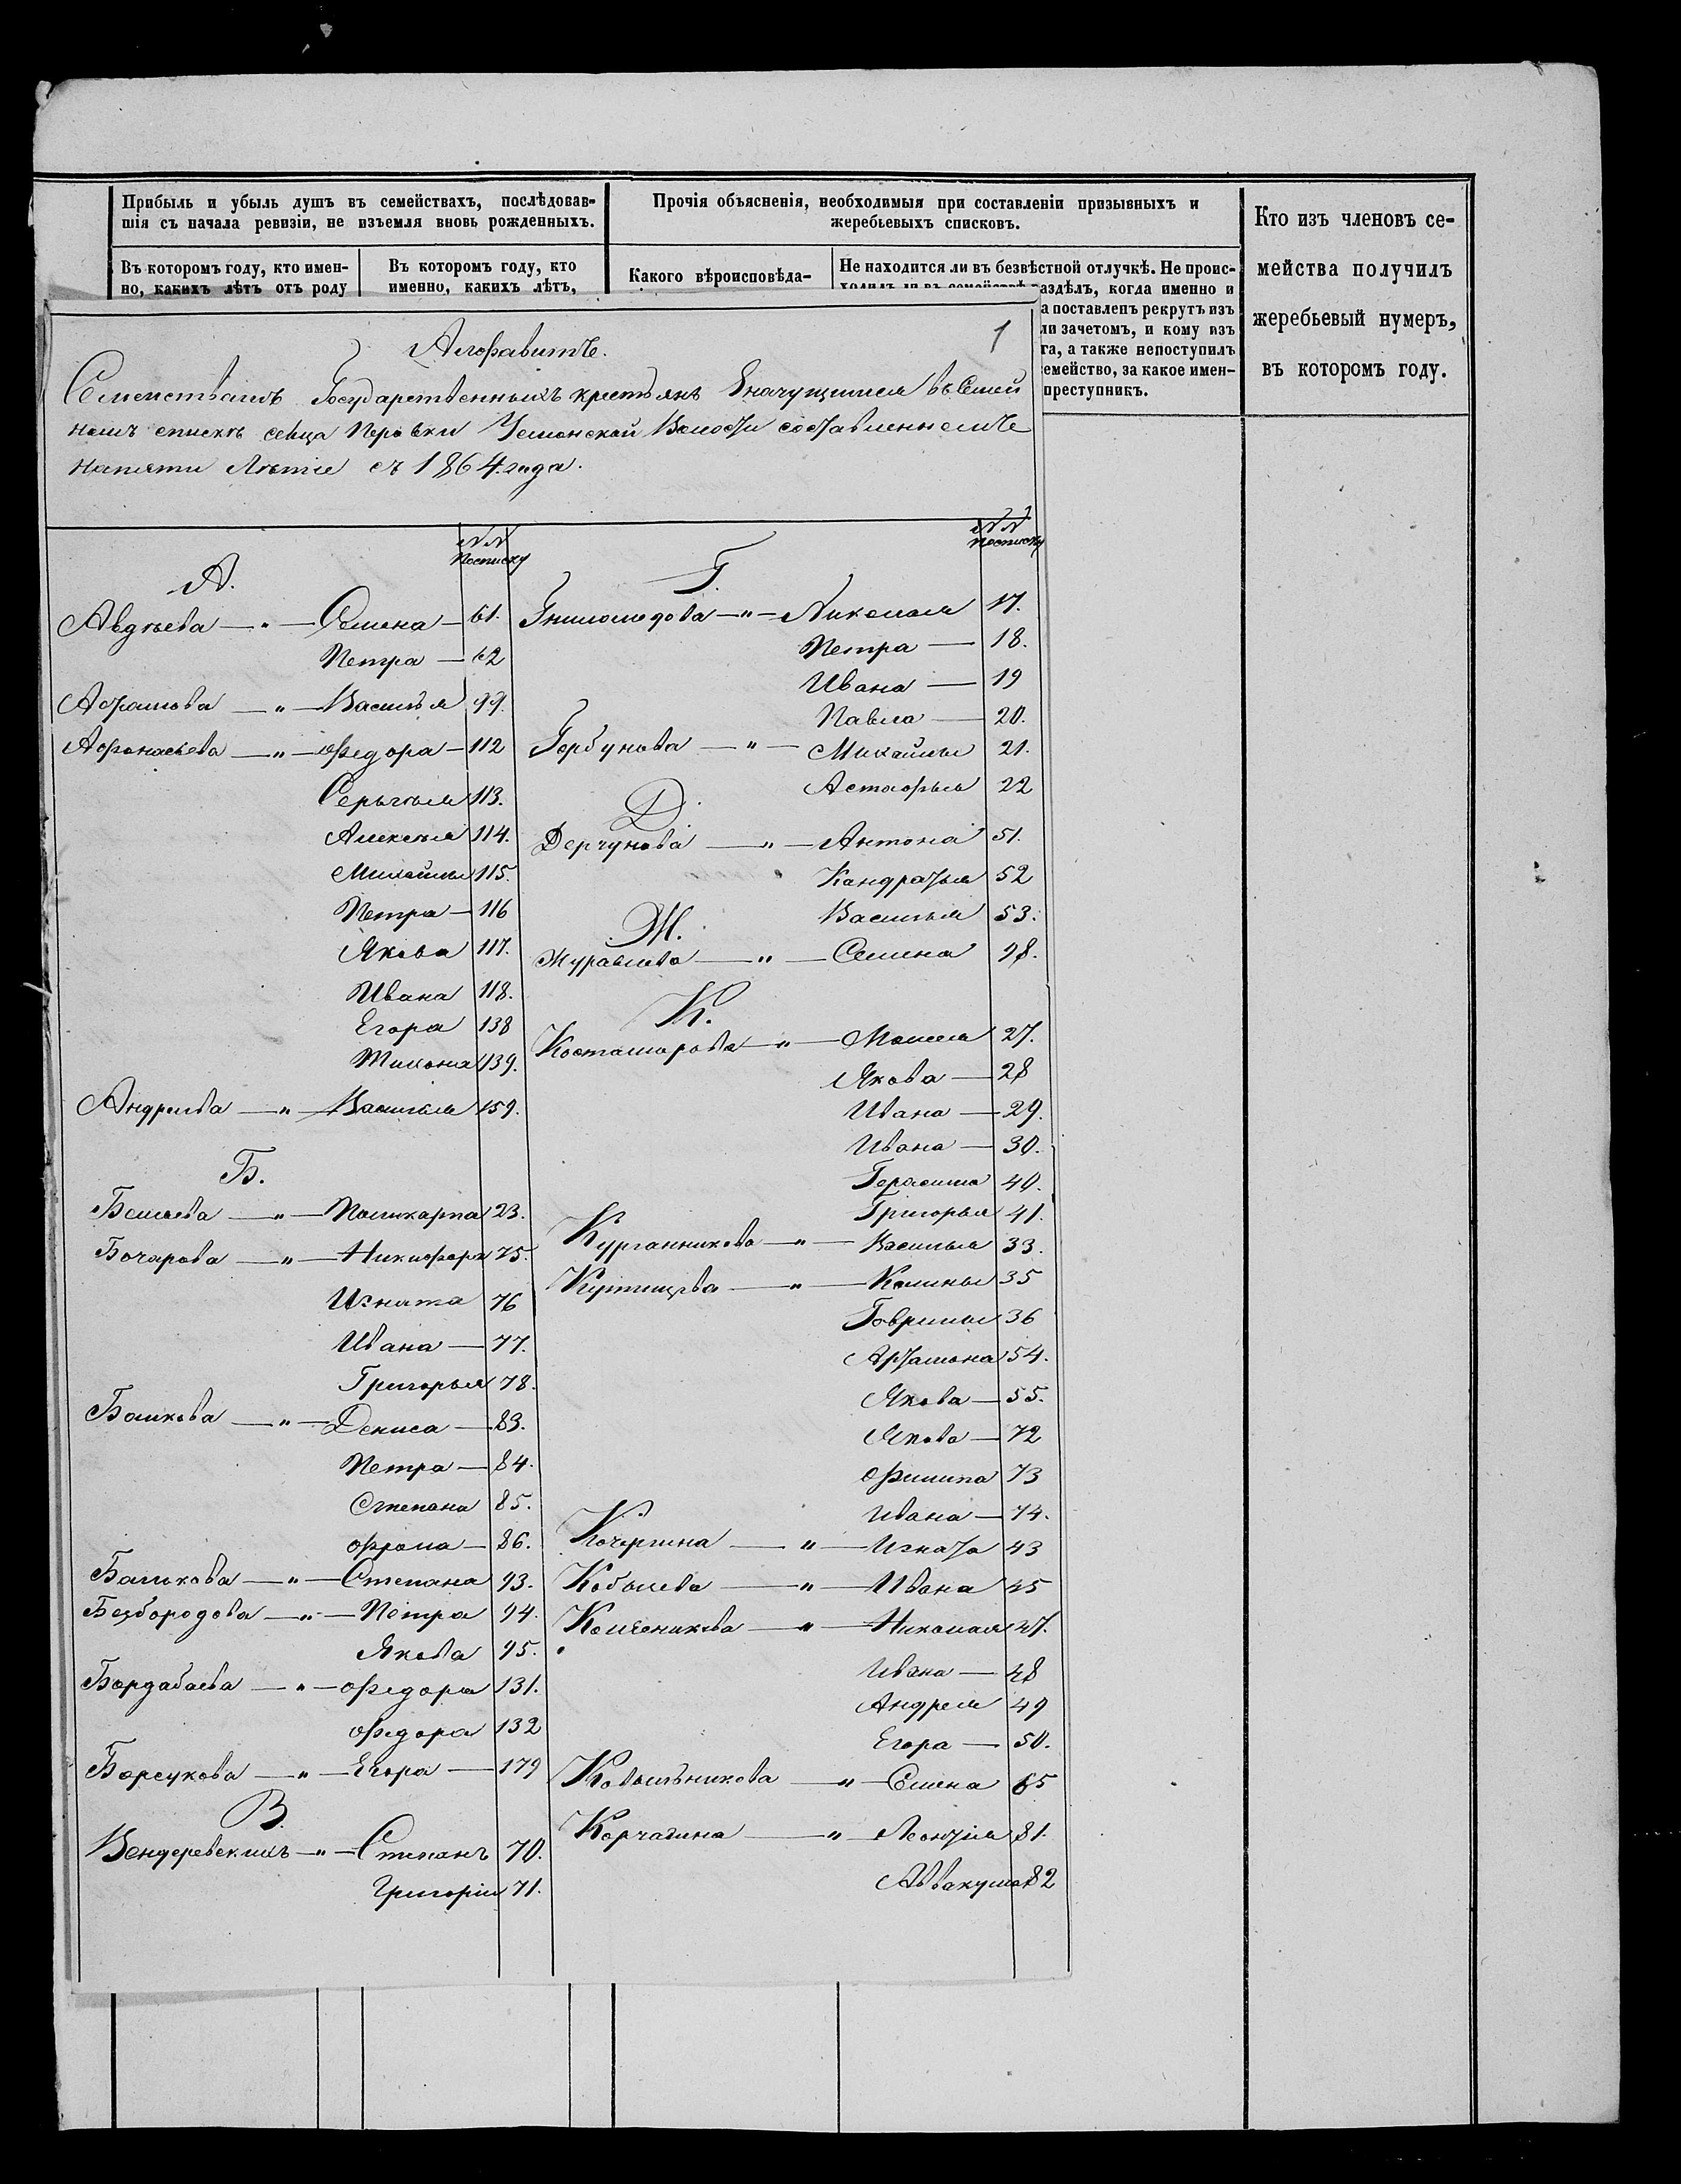 Прибыль и убыль душъ въ семействахъ, послѣдовав-
шія съ начала ревизіи, не изъемля вновь рожденныхъ.
Въ которомъ году, кто имен-
но, какихъ лѣтъ отъ роду
Въ которомъ году, кто
именно, какихъ лѣтъ,
Прочія объясненія, необходимыя при составленіи призывныхъ и
жеребьевыхъ списковъ.
Какого вѣроисповѣда-
Не находится ли въ безвѣстной отлучкѣ. Не проис-
ходилъ ли въ семействѣ раздѣлъ, когда именно и
а поставленъ рекрутъ изъ
ли зачетомъ, и кому изъ
га, а также непоступилъ
емейство, за какое имен-
преступникъ.
Кто изъ членовъ се-
мейства получилъ
жеребьевый нумеръ,
въ которомъ году.
1
Алфавитъ.
Семействамъ Государственныхъ крестьянъ Значущимся въ Семей
номъ спискѣ сельца Перовки Усманской Волости составленномъ
на пяти Лѣтіе съ 1864. года.
№№ по списку
А.
Авдѣева —"— Семена — 61.
Петра — 62
Абрамова —"— Василья 99.
Афонасьева —"— Федора — 112
Серьгѣя 113.
Алексѣя 114.
Михайлы 115.
Петра — 116
Якова 117.
Ивана 118.
Егора 138
Тихона 139.
Андреева —"— Василья 159.
Б.
Беляева —"— Поликарпа 23.
Бочарова —"— Никифора 75.
Игната 76
Ивана — 77.
Григорья 78.
Башкова —"— Дениса — 83.
Петра — 84.
Степана 85.
Фрола — 86.
Балыкова —"— Степана 93.
Безбородова —"— Петра 94.
Якова 95.
Бордабаева —"— Федора 131.
Федора 132
Борсукова —"— Егора — 179
В.
Вендеревскихъ —"— Степанъ 70.
Григорій 71.
№№ по списку
Г.
Гниломедова —"— Николая 17.
Петра — 18.
Ивана — 19
Павла — 20.
Горбунова —"— Михайлы 21.
Астафья 22
Д.
Дерчунова —"— Антона 51.
Кандратья 52
Василья 53.
Ж.
Журавлева —"— Семена 98.
К.
Костомарова —"— Моисея 27.
Якова — 28
Ивана — 29.
Ивана — 30.
Герасима 40.
Григорья 41.
Курганникова —"— Василья 33.
Купавцева —"— Калины 35
Гаврилы 36
Артамона 54.
Якова — 55.
Якова — 72
Филипа 73
Ивана — 74.
Кочергина —"— Игната 43
Кобылева —"— Ивана 45
Колесникова —"— Николая 47.
Ивана — 48
Андрея 49
Егора — 50.
Ковыльникова —"— Семена 65
Корчагина —"— Леонтія 81.
Аввакума 82